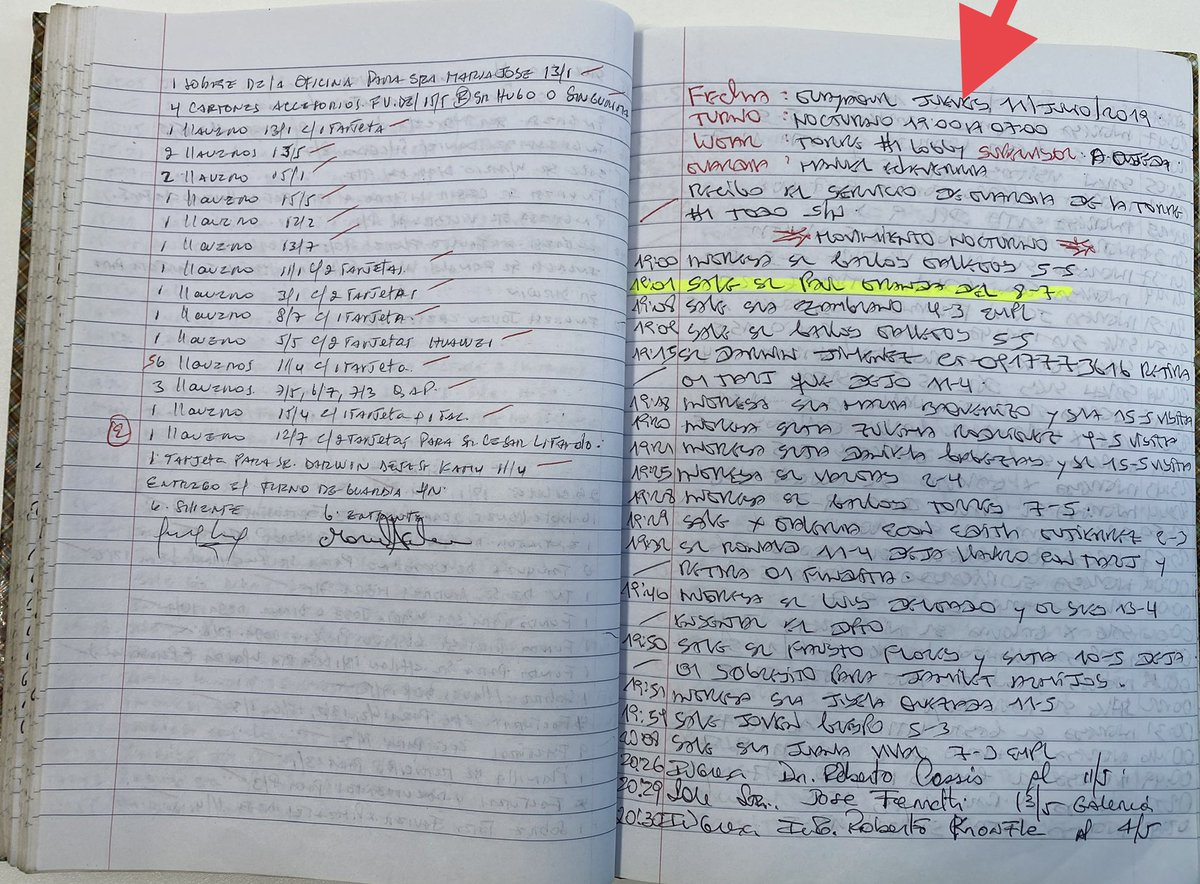 1 SOBRE DE/a OFICINA PARA SRA MARIA JOSE 13/1
4 CARTONES ACCESORIOS FU.DE/15/5 SR HUGO O
1 llavero 13/1 c/1 tarjeta
2 llaveros 13/5
2 llavero 15/1
1 llavero 15/5
1 llavero 12/2
1 llavero 13/7
1 llavero 11/1 c/2 tarjetas
1 llavero 3/1 c/2 tarjetas
1 llavero 8/7 c/1 tarjeta.
1 llavero 5/5 c/2 tarjetas HUAWEI
56 llaveros 11/4 c/1 tarjeta.
3 llaveros 7/5, 6/7, 7/3
1 llavero 15/4 c/1 tarjeta
2
1 llavero 12/7 c/2 tarjetas PARA SR CESAR LITARDO.
1 tarjeta PARA SR. DARWIN 11/4
ENTREGO El TURNO DE GUARDIA S/N.
G. SALIENTE G. ENTRANTE
Fecha : GUAYAQUIL JUEVES 11/JULIO/2019.
TURNO : NOCTURNO 19:00 A 07:00
LUGAR : TORRE #1 LOBBY SUPERVISOR
GUARDIA : MANUEL
RECIBO EL SERVICIO DE GUARDIA DE LA TORRE
#1 TODO S/N.
MOVIMIENTO NOCTURNO
19:00 INGRESA SR CARLOS GALLEGOS 5-5
19:01 SALE SR PAUL GRANDA DEL 8-7
19:08 SALE SRA ZAMBRANO 4-3 EMPL
19:09 SALE SR CARLOS GALLEGOS 5-5
19:15 SR DARWIN JIMENEZ CI-0917773616 RETIRA
01 TARJ QUE DEJO 11-4.
19:18 INGRESA SRA MARIA BAQUERIZO Y SRA 15-5 VISITA
19:20 INGRESA SRTA ZULEMA RODRIGUEZ 9-5 VISITA
19:21 INGRESA SRTA DANIELA Y SR 15-5 VISITA
19:25 INGRESA SR VARGAS 2-4
19:28 INGRESA SR CARLOS TORRES 7-5.
19:29 SALE X GALERIA ECON EDITH GUTIERREZ 2-3
19:32 SR ROMARO 11-4 DEJA LLAVERO CON TARJ Y
RETIRA 01 FUNDITA.
19:46 INGRESA SR LUIS DELGADO Y 02 SRES 13-4
ENSEÑAR EL DPTO
19:50 SALE SR FAUSTO FLORES Y SRTA 10-5 DEJA
01 SOBRESITO PARA JAMILET ARMIJOS.
19:51 INGRESA SRA QUEZADA 11-5
19:59 SALE JOVEN CRESPO 5-3
20:08 SALE SRA JUANA 7-3 EMPL
20:26 INGRESA Dr. Roberto Cassis al 11/5.
20:29 Sale Sr. Jose 13/5 GALERIA
20:30 INGRESA ING. Roberto Kronfle al 4/5